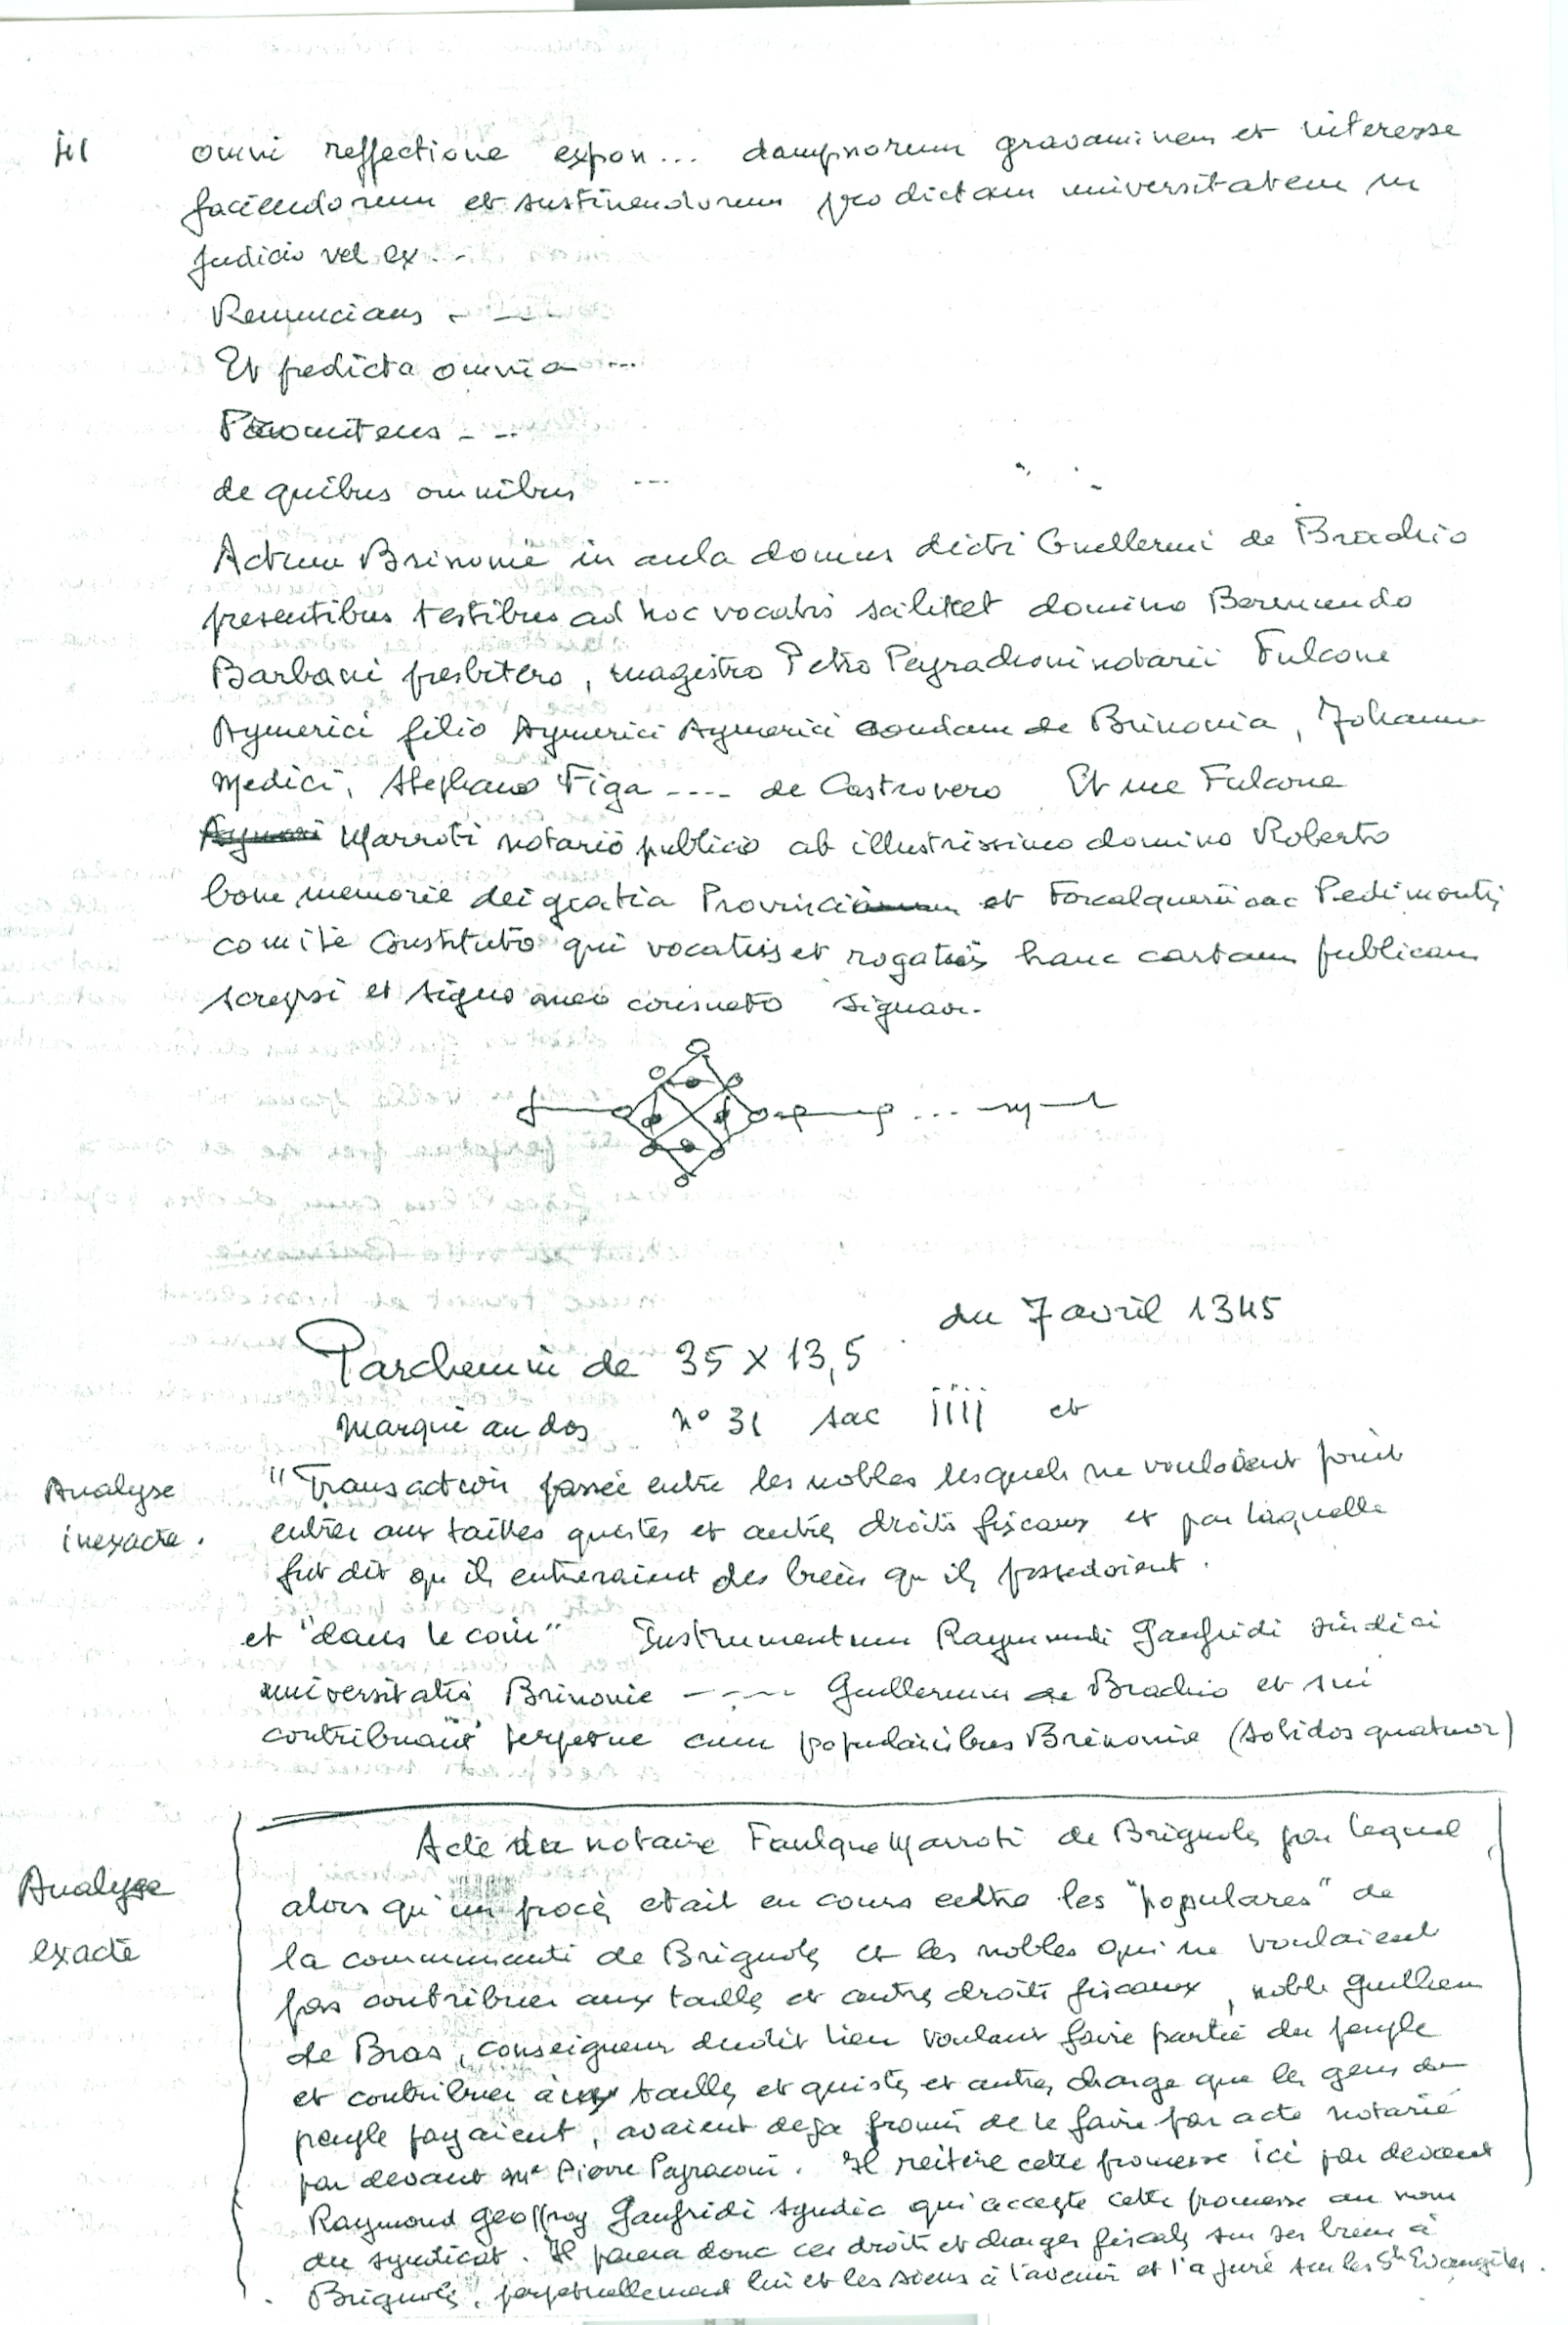 41 omni reffectione expon... dampnorum gravaminem et interesse
faciendorum et sustinendorum pro dictam universitatem in
Judicio vel ex...
Renuncians - ---
Et predicta omnia ---
Promitens - --
de quibus omnibus ---
Actum Brinonie in aula domus dicti Guillermi de Brachio
presentibus testibus ad hoc vocatis scilitet domino Bermundo
Barbani presbitero, magistro Petro Peyrachoni notarii Fulcone
Aymerici filio Aymerici Aymerici condam de Brinonia, Johanne
Medici, Stephano Figa ---- de Castrovero Et me Fulcone
Marroti notario publico ab illustrissimo domino Roberto
bone memorie dei gratia Provincie et Forcalquerii ac Pedimontis
comite Constituto qui vocatus et rogatus hanc cartam publicam
scrypsi et signo meo consueto signavi.
du 7 avril 1345
Parchemin de 35 x 13,5
Marqué au dos n° 31 sac iiij et
Analyse inexacte.
"Transaction passée entre les nobles lesquels ne vouloient point
entrer aux tailles questes et autres droits fiscaux et par laquelle
fut dit qu'ils entreraient des biens qu'ils possedoient.
et "dans le coin" Instrumentum Raymundi Gaufridi sindici
universitatis Brinonie ----- Guillermus de Brachio et sui
contribuant perpetue cum popularibus Brinonie (solidos quatuor)
Analyse exacte
Acte du notaire Faulque Marroti de Brignoles par lequel
alors qu'un procès etait en cours entre les "populares" de
la communauté de Brignoles et les nobles qui ne voulaient
pas contribuer aux tailles et autres droits fiscaux, noble Guilhem
de Bras, conseigneur dudit lieu voulant faire partie du peuple
et contribuer aux tailles et quistes et autres charge que les gens du
peuple payaient, avaient deja promis de le faire par acte notarié
par devant Me Pierre Payraconi. Il reitère cette promesse ici par devant
Raymond Geoffroy Gaufridi syndic qui accepte cette promesse au nom
du syndicat. Il paiera donc ces droits et charges fiscales sur ses biens à
Brignoles, perpetuellement lui et les siens à l'avenir et l'a juré sur les Sts Evangiles.